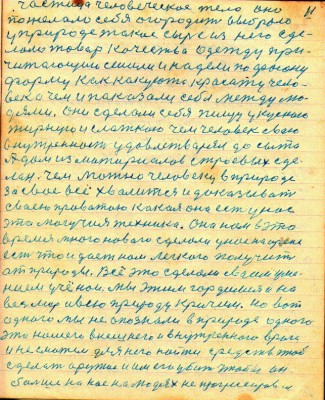 частица человеческое тело оно
пожелало себя огородить выбрало
у природе такое сырьё из него сде-
лало товар качества одежду при-
читающую сшили и надели по фасону
форму как какую то красоту чело-
века чем и показали себя между лю-
дями. Они сделали себя пищу укусною
жирную и сладкою чем человек свою
внутренность удовлетворял до сыта
А дом из материалов строевых сде-
лан. чем можно человеку в природе
за свое всё хвалится и доказывать
своею правотою какая она есть у нас
это могучия техника. Она нам в это
время много нового сделали
есть что и дает нам легкого получить
от природы. Всё это сделали своим уме-
нием учёной. Мы этим гордимся и на
весь мир и всю природу кричим. Но вот
одного мы не опознали в природе одного
это нашего внешнего и внутренного врага
и не смогли для него найти средств чтоб
сделать оружие и им его убить чтобы он
больше на нас на людях не прогрессировал